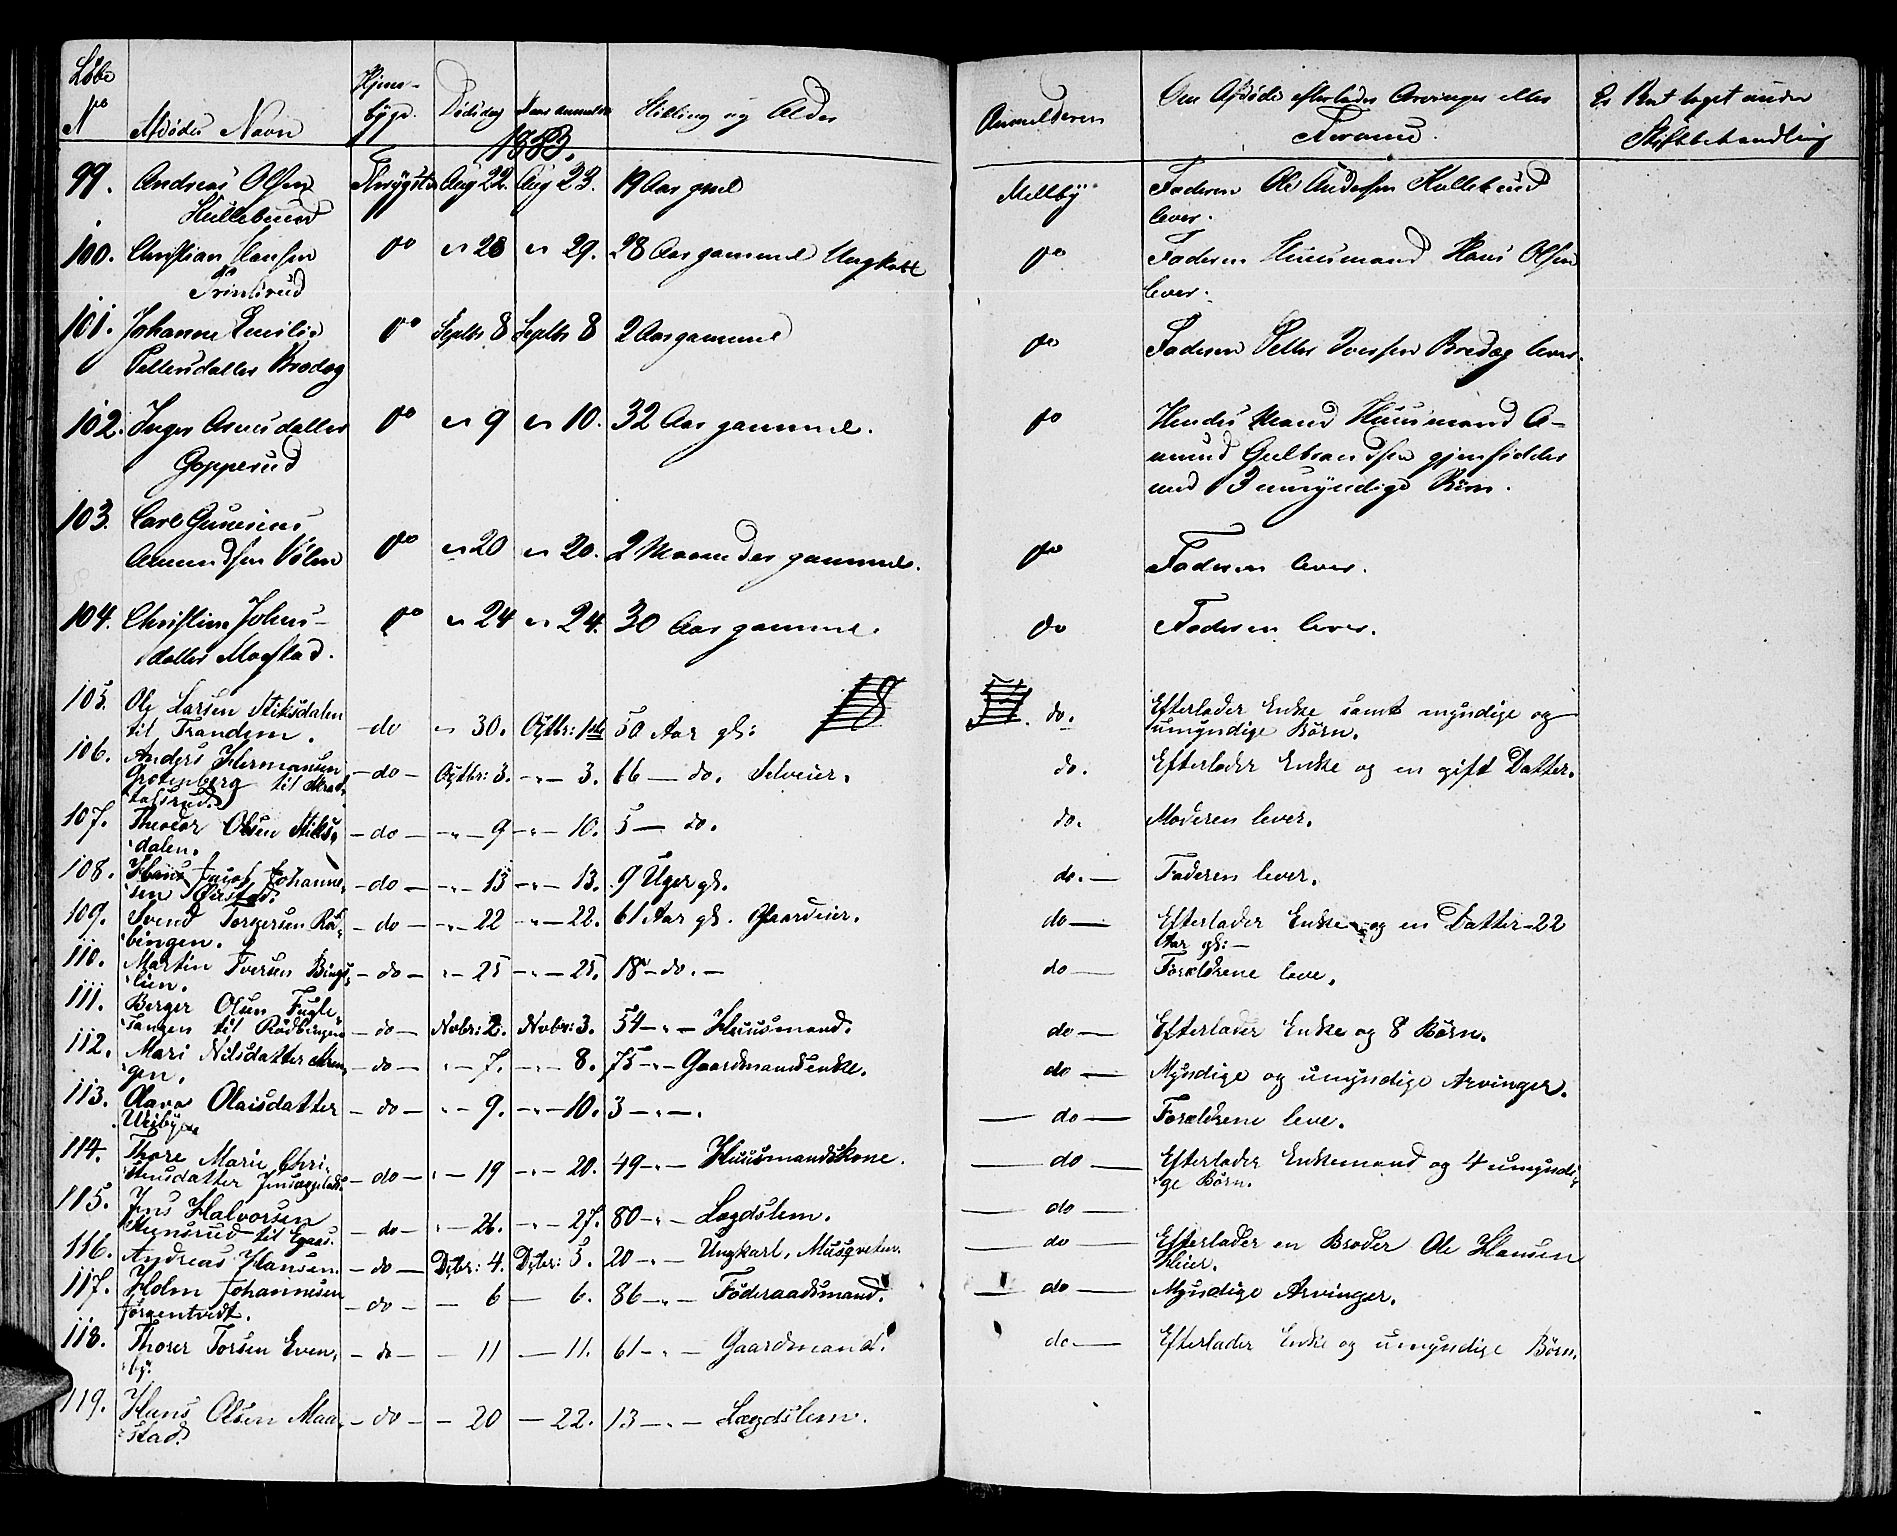 Løbe No | Afdødes Navn | Hjembygd. | Dødsdag | Naar anmeldt | Stilling og Alder | Anmelderen | Om Afdøde efterlader Arvinger eller Livsarv. | Er Boet taget under Skiftebehandling
1883.
99. Andreas Olsen | Thrygstad | Aug 22. | Aug 23. | 19 Aar gml | Mellby | Faderen Ole Andersen Kullebund
Kullebund | lever.
100. Christian Hansen | do | " 28 | " 29. | 28 Aar gammel Ungkarl | do | Faderen Huusmand Hans Olsen
lever.
101. Johanne Emilie | do | Septbr 8 | Septbr 8 | 2 Aar gammel | do | Faderen Petter Iversen Bredag lever.
Pettersdatter Bredag
102. Inger Arnesdatter | do | " 9 | " 10. | 32 Aar gammel. | do | Hendes Mand Huusmand A-
Gopperud | mund Gulbrandsen gjensidder
med 3 umyndige Børn.
103. Carl Gunerius
Amundsen Vølen | do | " 20 | " 20. | 2 Maaneder gammel. | do | Faderen lever.
104. Christine Johns- | do | " 24 | " 24. | 30 Aar gammel. | do | Faderen lever.
datter Mostad.
105. Ole Larsen Stiksdalen | Efterlader Enke samt myndige og
til Trandem. | do | " 30. | Octbr: 1ste | 50 Aar gl: | do. | umyndige Børn.
106. Anders Hermansen
Grotenberg til Skrat- | do | Octbr: 3. | " 3. | 66 — do. Selveier. | do. | Efterlader Enke og en gift Datter.
tafsrud.
107. Theodor Olsen Stiks- | do | " 9 | " 10. | 5 — do. | do. | Moderen lever.
dalen.
108. Hans Jacob Johanne- | do | " 13 | " 13. | 9 Uger gl. | do. | Faderen lever.
sen
109. Svend Torgersen Rø- | do | " 22 | " 22. | 61 Aar gl. Gaardeier. | do | Efterlader Enke og en Datter 22
bingen. | Aar gl:
110. Martin Iversen Bings- | do | " 25 | " 25. | 18 — do. — | do | Forældrene leve.
lien.
111. Berger Olsen Fugle-
tangen til Rødbergen | do | Novbr: 2. | Novbr: 3. | 54 — " — Huusmand. | do | Efterlader Enke og 8 Børn.
112. Mari Nilsdatter | do | " 7. | " 8. | 75 — " — Gaardmandsenke. | do | Myndige og umyndige Arvinger.
gen.
113. Olava Olaisdatter | do | " 9. | " 10. | 3 — " — . | do | Forældrene leve.
114. Thore Marie Chri- | do | " 19 | " 20. | 49 — " — Huusmandskone. | do | Efterlader Enkemand og 4 umyndi-
stensdatter | ge Børn.
115. Jens Halvorsen
Stensrud til | do | " 26. | " 27. | 80 — " — Lægdslem. | do
116. Andreas Hansen. | do | Dcbr: 4. | Dcbr: 5. | 20 — " — Ungkarl, Musqueter. | do | Efterlader en Broder Ole Hansen
Heier.
117. Holm Johannesen | do | — 6 | — 6. | 86 — " — Føderaadsmand. | do | Myndige Arvinger.
Jørgentvedt.
118. Thorer Torsen Even- | do | — 11 | — 11. | 61 — " — Gaardmand. | do | Efterlader Enke og umyndige Børn.
by.
119. Hans Olsen Maa- | do | — 20 | — 22. | 13 — " — Lægdslem.
stad.